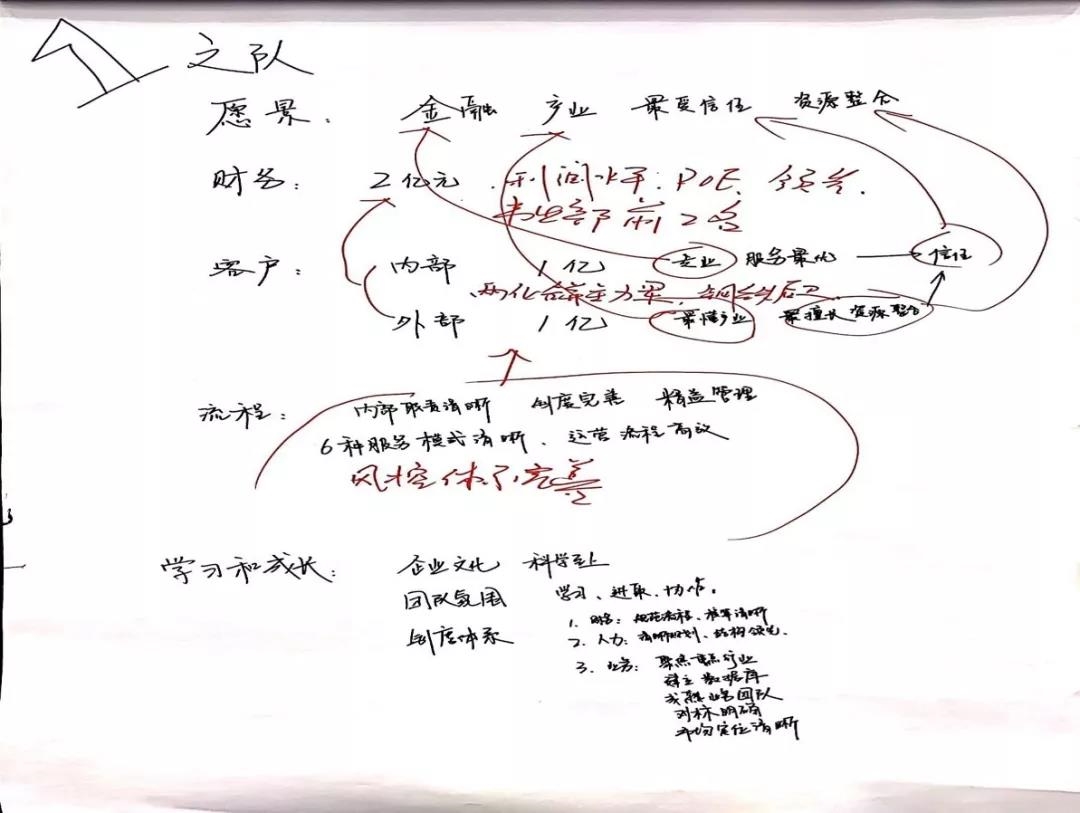 之队
愿景: 金融 产业 最受信任 资源整合
财务: 2亿元 利润水平: ROE
前2名
客户: 内部 1亿 专业 服务最优 信任
外部 1亿 最懂产业 最擅长资源整合
流程: 内部职责清晰 制度完善 精益管理
6种服务模式清晰、运营流程高效
风控体系完善
学习和成长: 企业文化 科学至上
团队氛围 学习、进取、协作。
制度体系 1. 财务: 规范流程、核算清晰
2. 人力: 清晰规划、结构优化.
3. 业务: 聚焦重点行业
建立数据库
成熟业务团队
对标明确
市场定位清晰